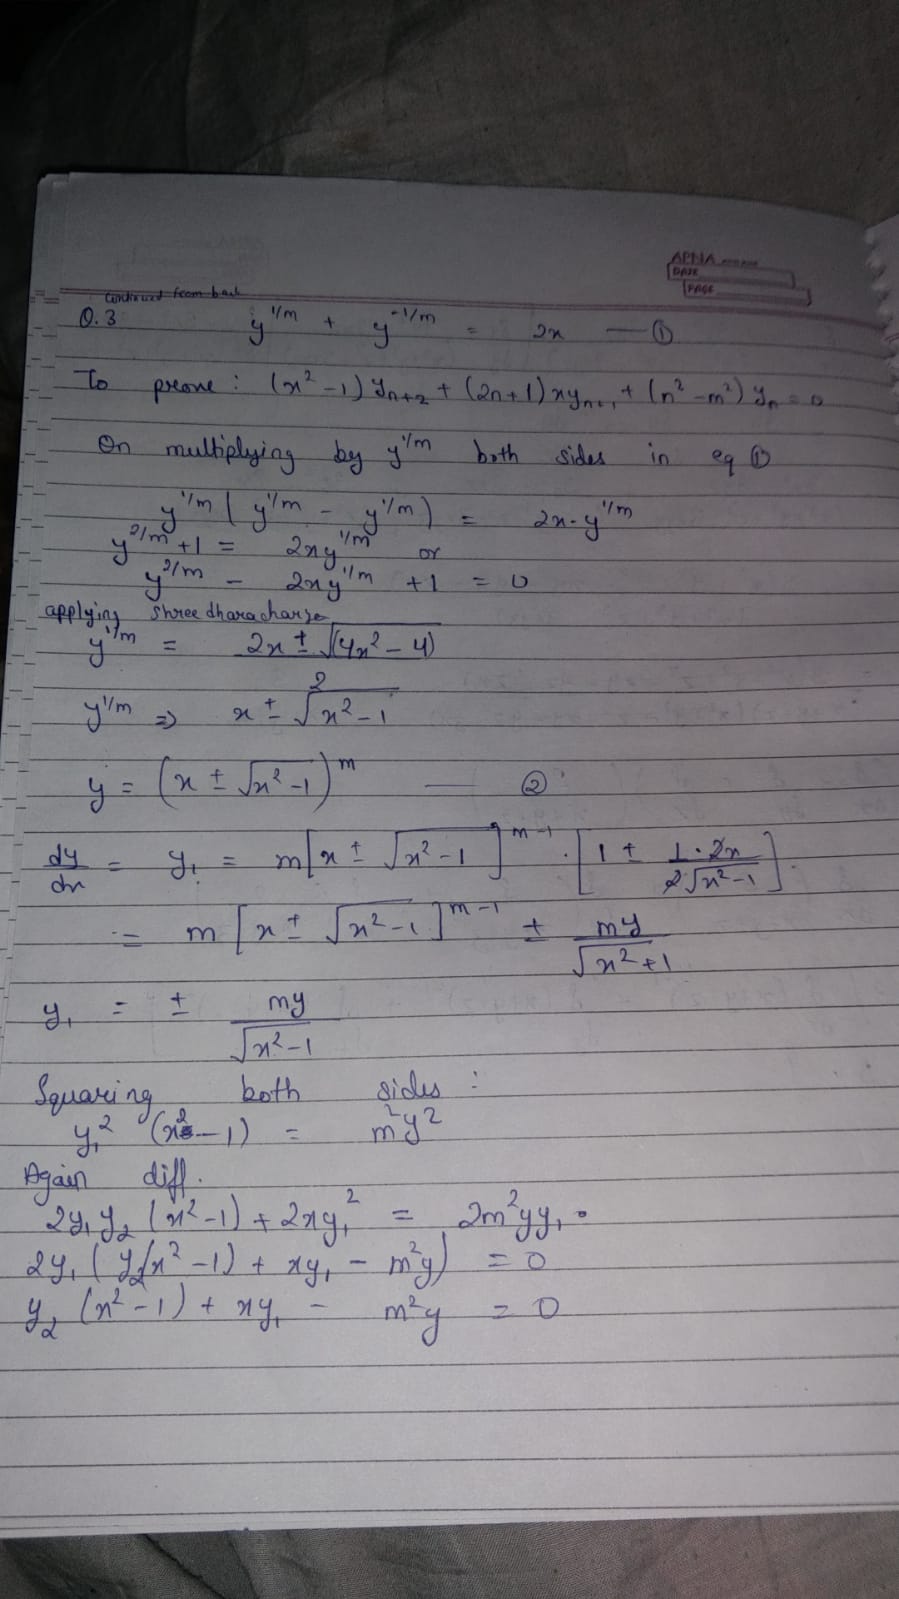 APNA
DATE
PAGE
Continued from back
Q.3 y^{1/m} + y^{-1/m} = 2x — ①
To prove : (x² -1) y_{n+2} + (2n+1) xy_{n+1} + (n² - m²) y_n = 0
On multiplying by y^{1/m} both sides in eq ①
y^{1/m} ( y^{1/m} - y^{1/m} ) = 2x·y^{1/m}
y^{2/m} +1 = 2xy^{1/m} or
y^{2/m} - 2xy^{1/m} +1 = 0
applying shreedharacharya
y^{1/m} = 2x ± √(4x² - 4) / 2
y^{1/m} ⇒ x ± √x² - 1
y = (x ± √x² -1)^m — ②
dy/dx = y₁ = m[x ± √x² -1]^{m-1} · [1 ± 1·2x / 2√x² -1].
= m [x ± √x² -1]^{m-1} ± my / √x² +1
y₁ = ± my / √x² -1
Squaring both sides :
y₁² (x² -1) = m²y²
Again diff.
2y₁y₂ (x² -1) + 2xy₁² = 2m²yy₁
2y₁ ( y₂(x² -1) + xy₁ - m²y) = 0
y₂ (x² -1) + xy₁ - m²y = 0